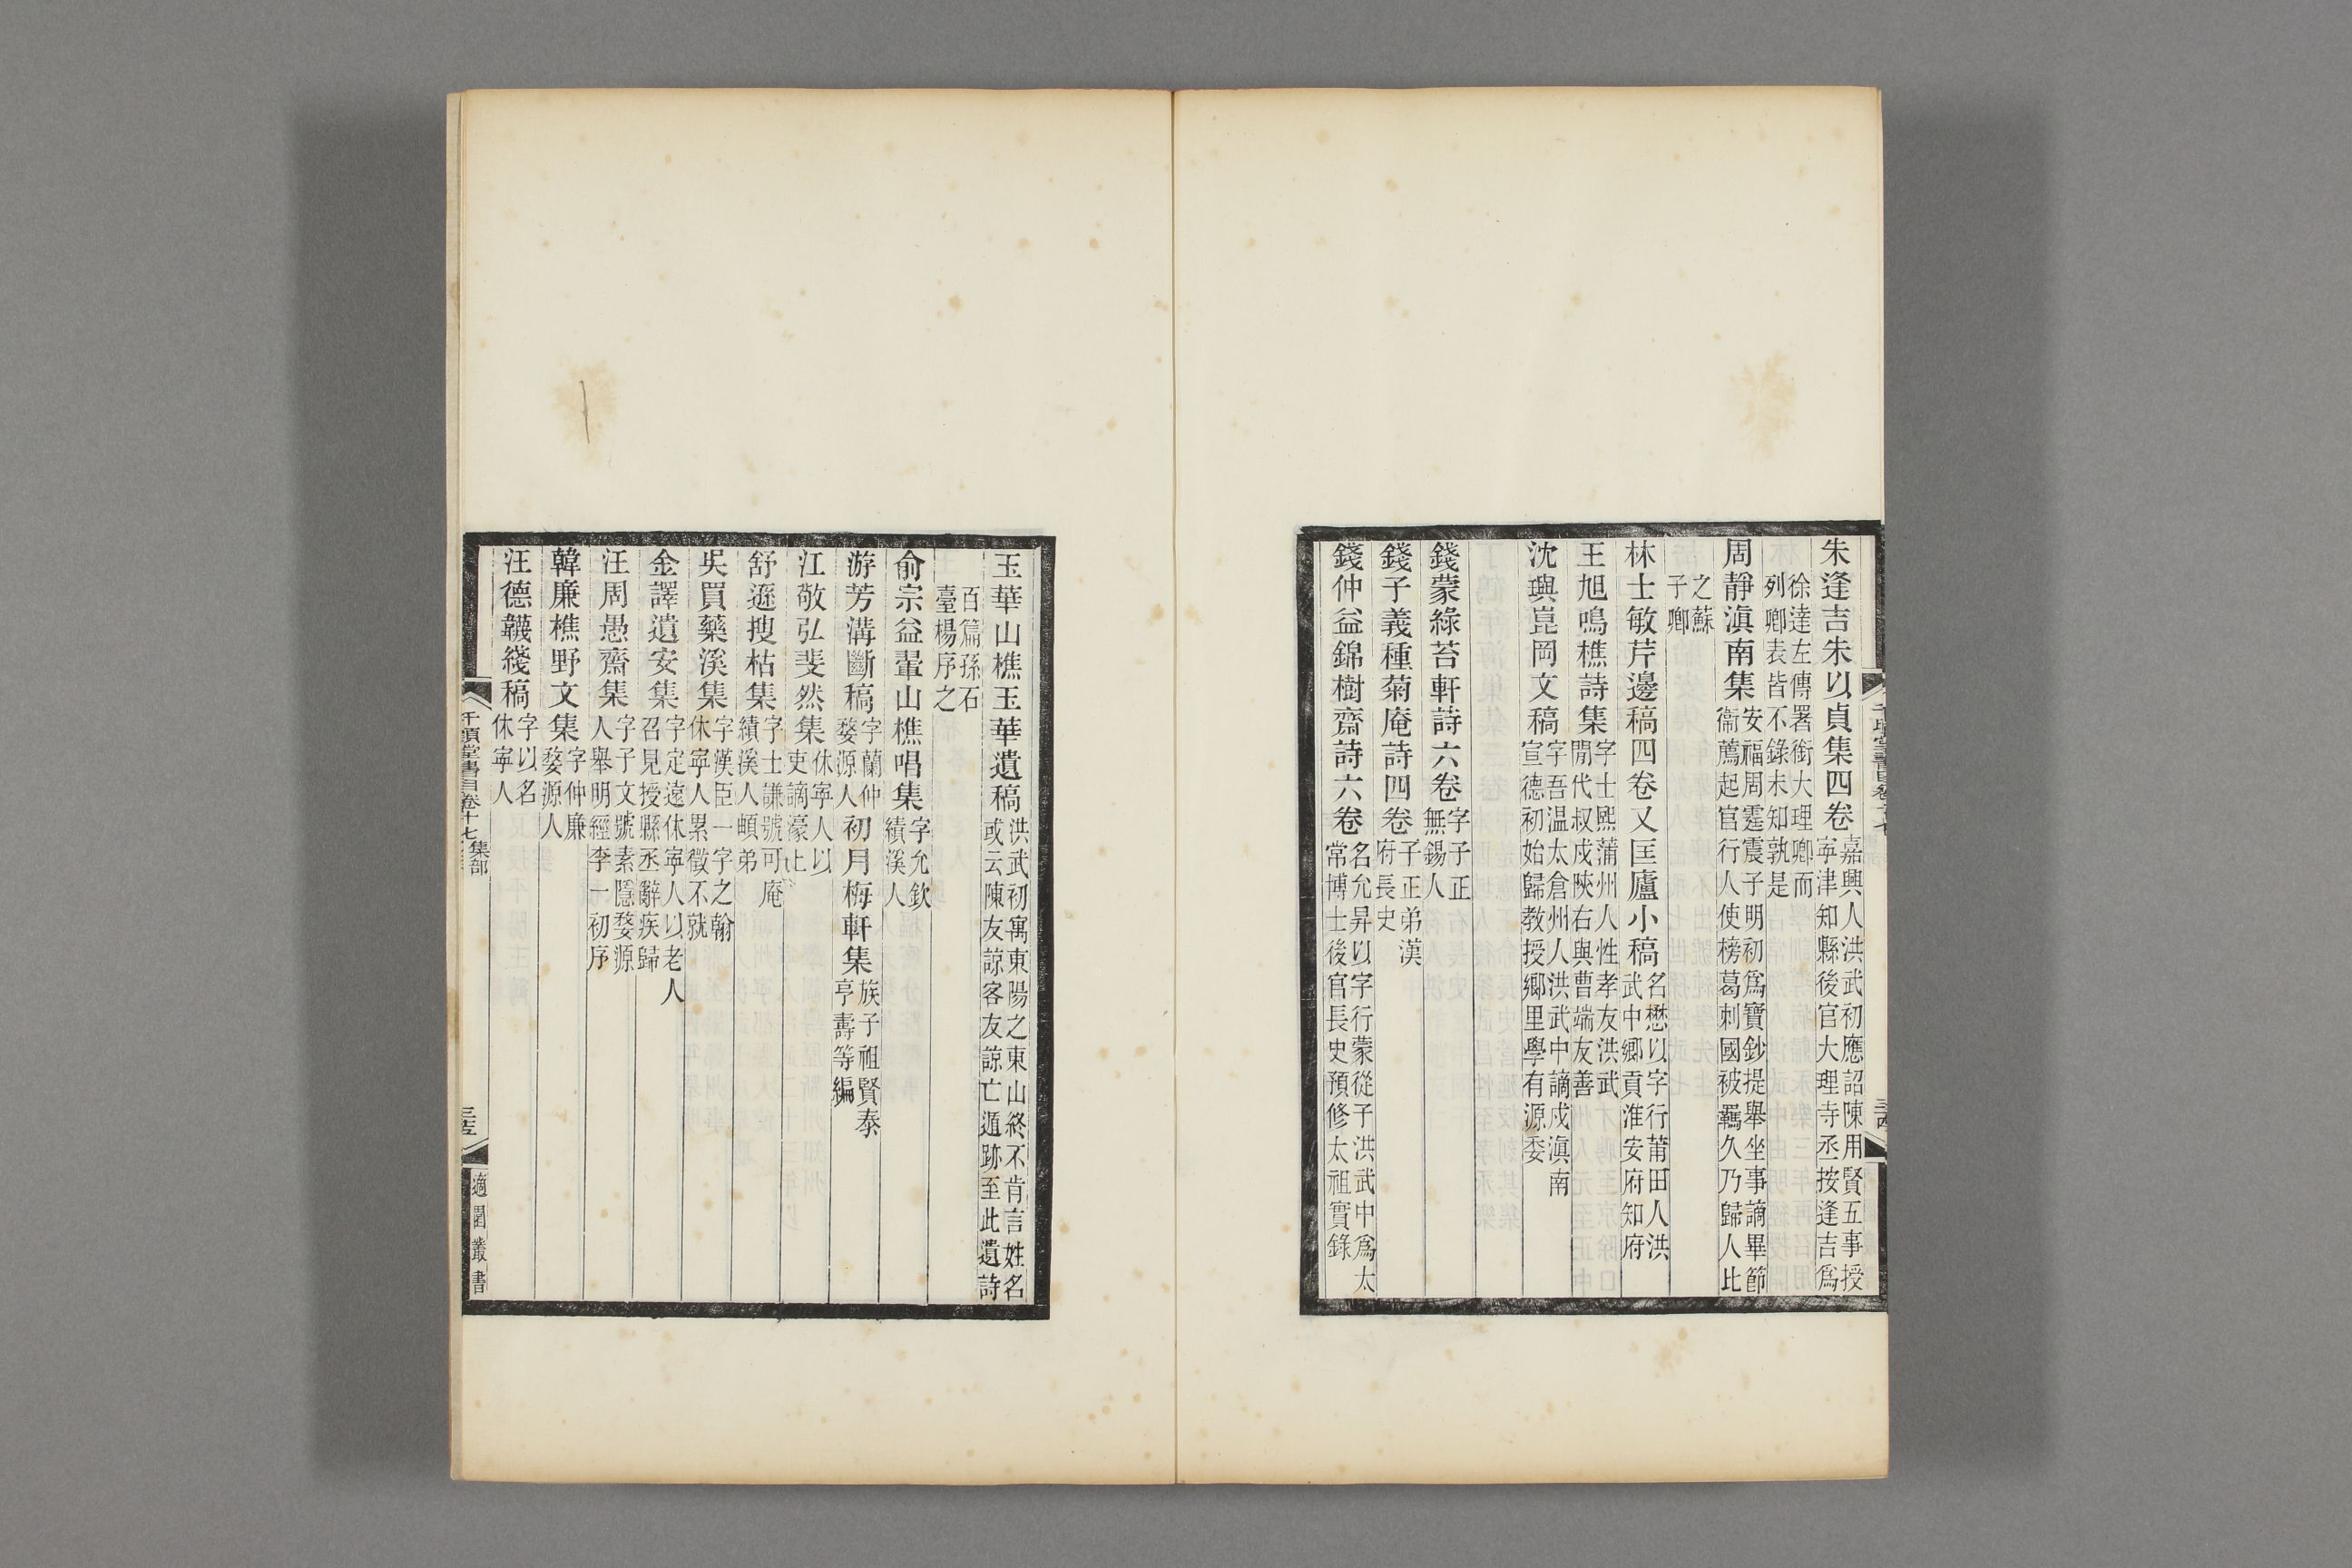 朱逢吉朱以貞集四卷嘉興人洪武初應詔陳用賢五事授寧津知縣後官大理寺丞按逢吉爲
徐達左傳署銜大理卿而列卿表皆不錄未知孰是
周靜滇南集安福周霆震子明初爲寶鈔提舉坐事謫畢節衞薦起官行人使榜葛刺國被羈久乃歸人比
之蘇子卿
林士敏芹邊稿四卷又匡廬小稿名懋以字行莆田人洪武中鄉貢淮安府知府
王旭鳴樵詩集字士熙蒲州人性孝友洪武閒代叔戍陝右與曹端友善
沈璵崑岡文稿字吾温太倉州人洪武中謫戍滇南宣德初始歸教授鄉里學有源委
錢蒙綠苔軒詩六卷字子正無錫人
錢子義種菊庵詩四卷子正弟漢府長史
錢仲益錦樹齋詩六卷名允昇以字行蒙從子洪武中爲太常博士後官長史預修太祖實錄
玉華山樵玉華遺稿洪武初寓東陽之東山終不肯言姓名或云陳友諒客友諒亡遁跡至此遺詩
百篇孫石臺楊序之
俞宗益翬山樵唱集字允欽績溪人
游芳溝斷稿字蘭仲婺源人初月梅軒集族子祖賢泰亨壽等編
江敬弘斐然集休寧人以吏謫濠上
舒遜搜枯集字士謙號可庵績溪人頔弟
吳買藥溪集字漢臣一字之翰休寧人累徵不就
金譯遺安集字定遠休寧人以老人召見授縣丞辭疾歸
汪周愚齋集字子文號素隱婺源人舉明經李一初序
韓廉樵野文集字仲廉婺源人
汪德韈綫稿字以名休寧人
千頃堂書目卷十七集部
三五
適園叢書